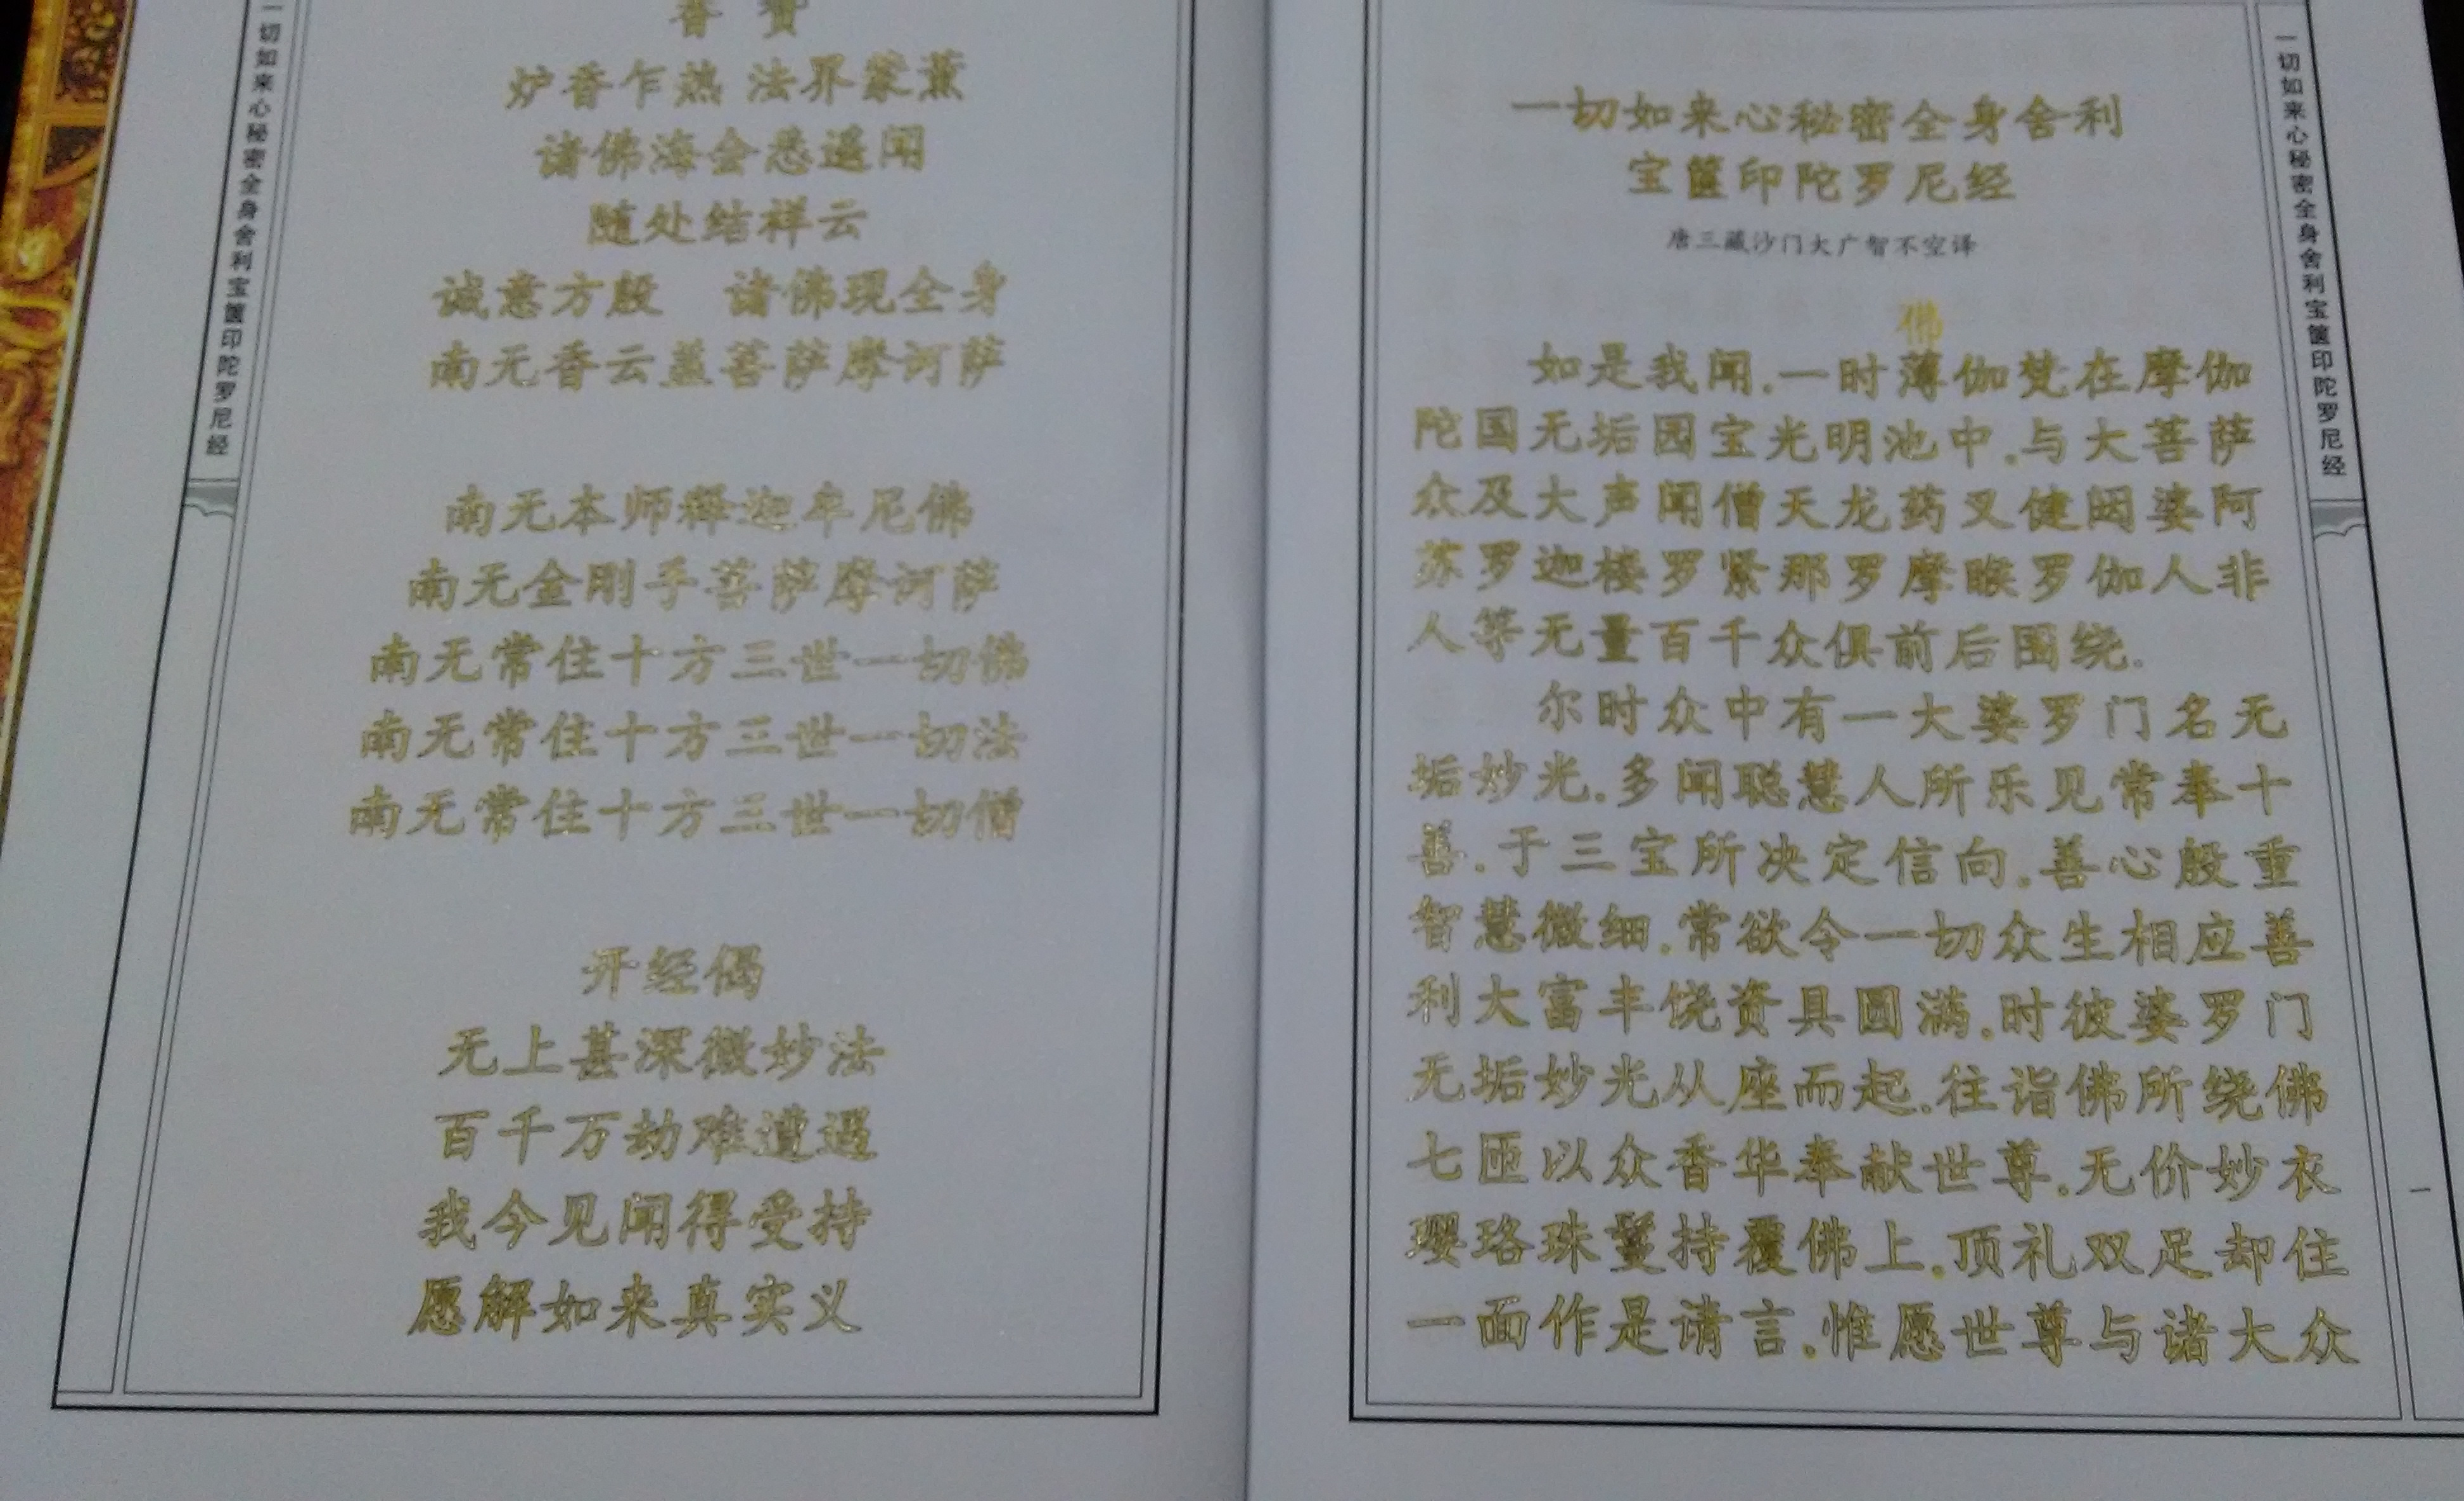 一切如来心秘密全身舍利宝箧印陀罗尼经
香 赞
炉香乍热 法界蒙薰
诸佛海会悉遥闻
随处结祥云
诚意方殷 诸佛现全身
南无香云盖菩萨摩诃萨
南无本师释迦牟尼佛
南无金刚手菩萨摩诃萨
南无常住十方三世一切佛
南无常住十方三世一切法
南无常住十方三世一切僧
开经偈
无上甚深微妙法
百千万劫难遭遇
我今见闻得受持
愿解如来真实义
一切如来心秘密全身舍利
宝箧印陀罗尼经
唐三藏沙门大广智不空译
佛
如是我闻.一时薄伽梵在摩伽
陀国无垢园宝光明池中.与大菩萨
众及大声闻僧天龙药叉健闼婆阿
苏罗迦楼罗紧那罗摩睺罗伽人非
人等无量百千众俱前后围绕.
尔时众中有一大婆罗门名无
垢妙光.多闻聪慧人所乐见常奉十
善.于三宝所决定信向.善心殷重
智慧微细.常欲令一切众生相应善
利大富丰饶资具圆满.时彼婆罗门
无垢妙光从座而起.往诣佛所绕佛
七匝以众香华奉献世尊.无价妙衣
璎珞珠鬘持覆佛上.顶礼双足却住
一面作是请言.惟愿世尊与诸大众
一切如来心秘密全身舍利宝箧印陀罗尼经
一